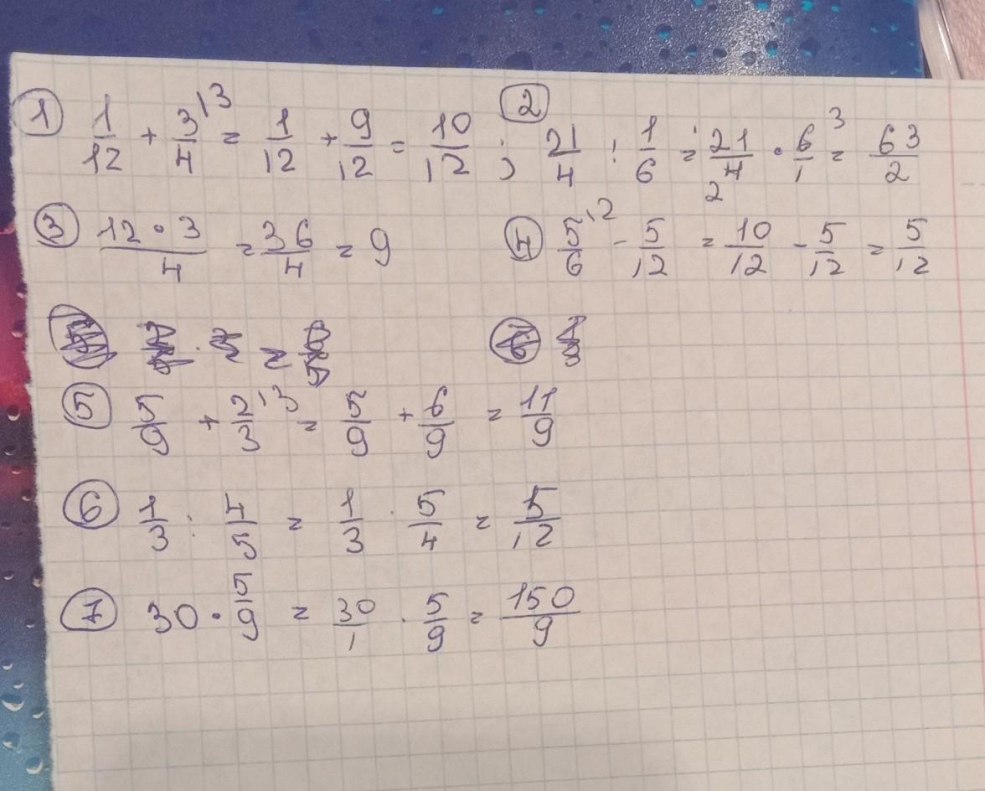 ① 1/12 + 3/4 ^(\3) = 1/12 + 9/12 = 10/12 ; ② 21/4 : 1/6 = 21/4 · 6/1 = 63/2 (2, 3)
③ 12·3/4 = 36/4 = 9 ④ 5/6 ^(\2) - 5/12 = 10/12 - 5/12 = 5/12
⑤ 5/9 + 2/3 ^(\3) = 5/9 + 6/9 = 11/9
⑥ 1/3 : 4/5 = 1/3 · 5/4 = 5/12
⑦ 30 · 5/9 = 30/1 · 5/9 = 150/9